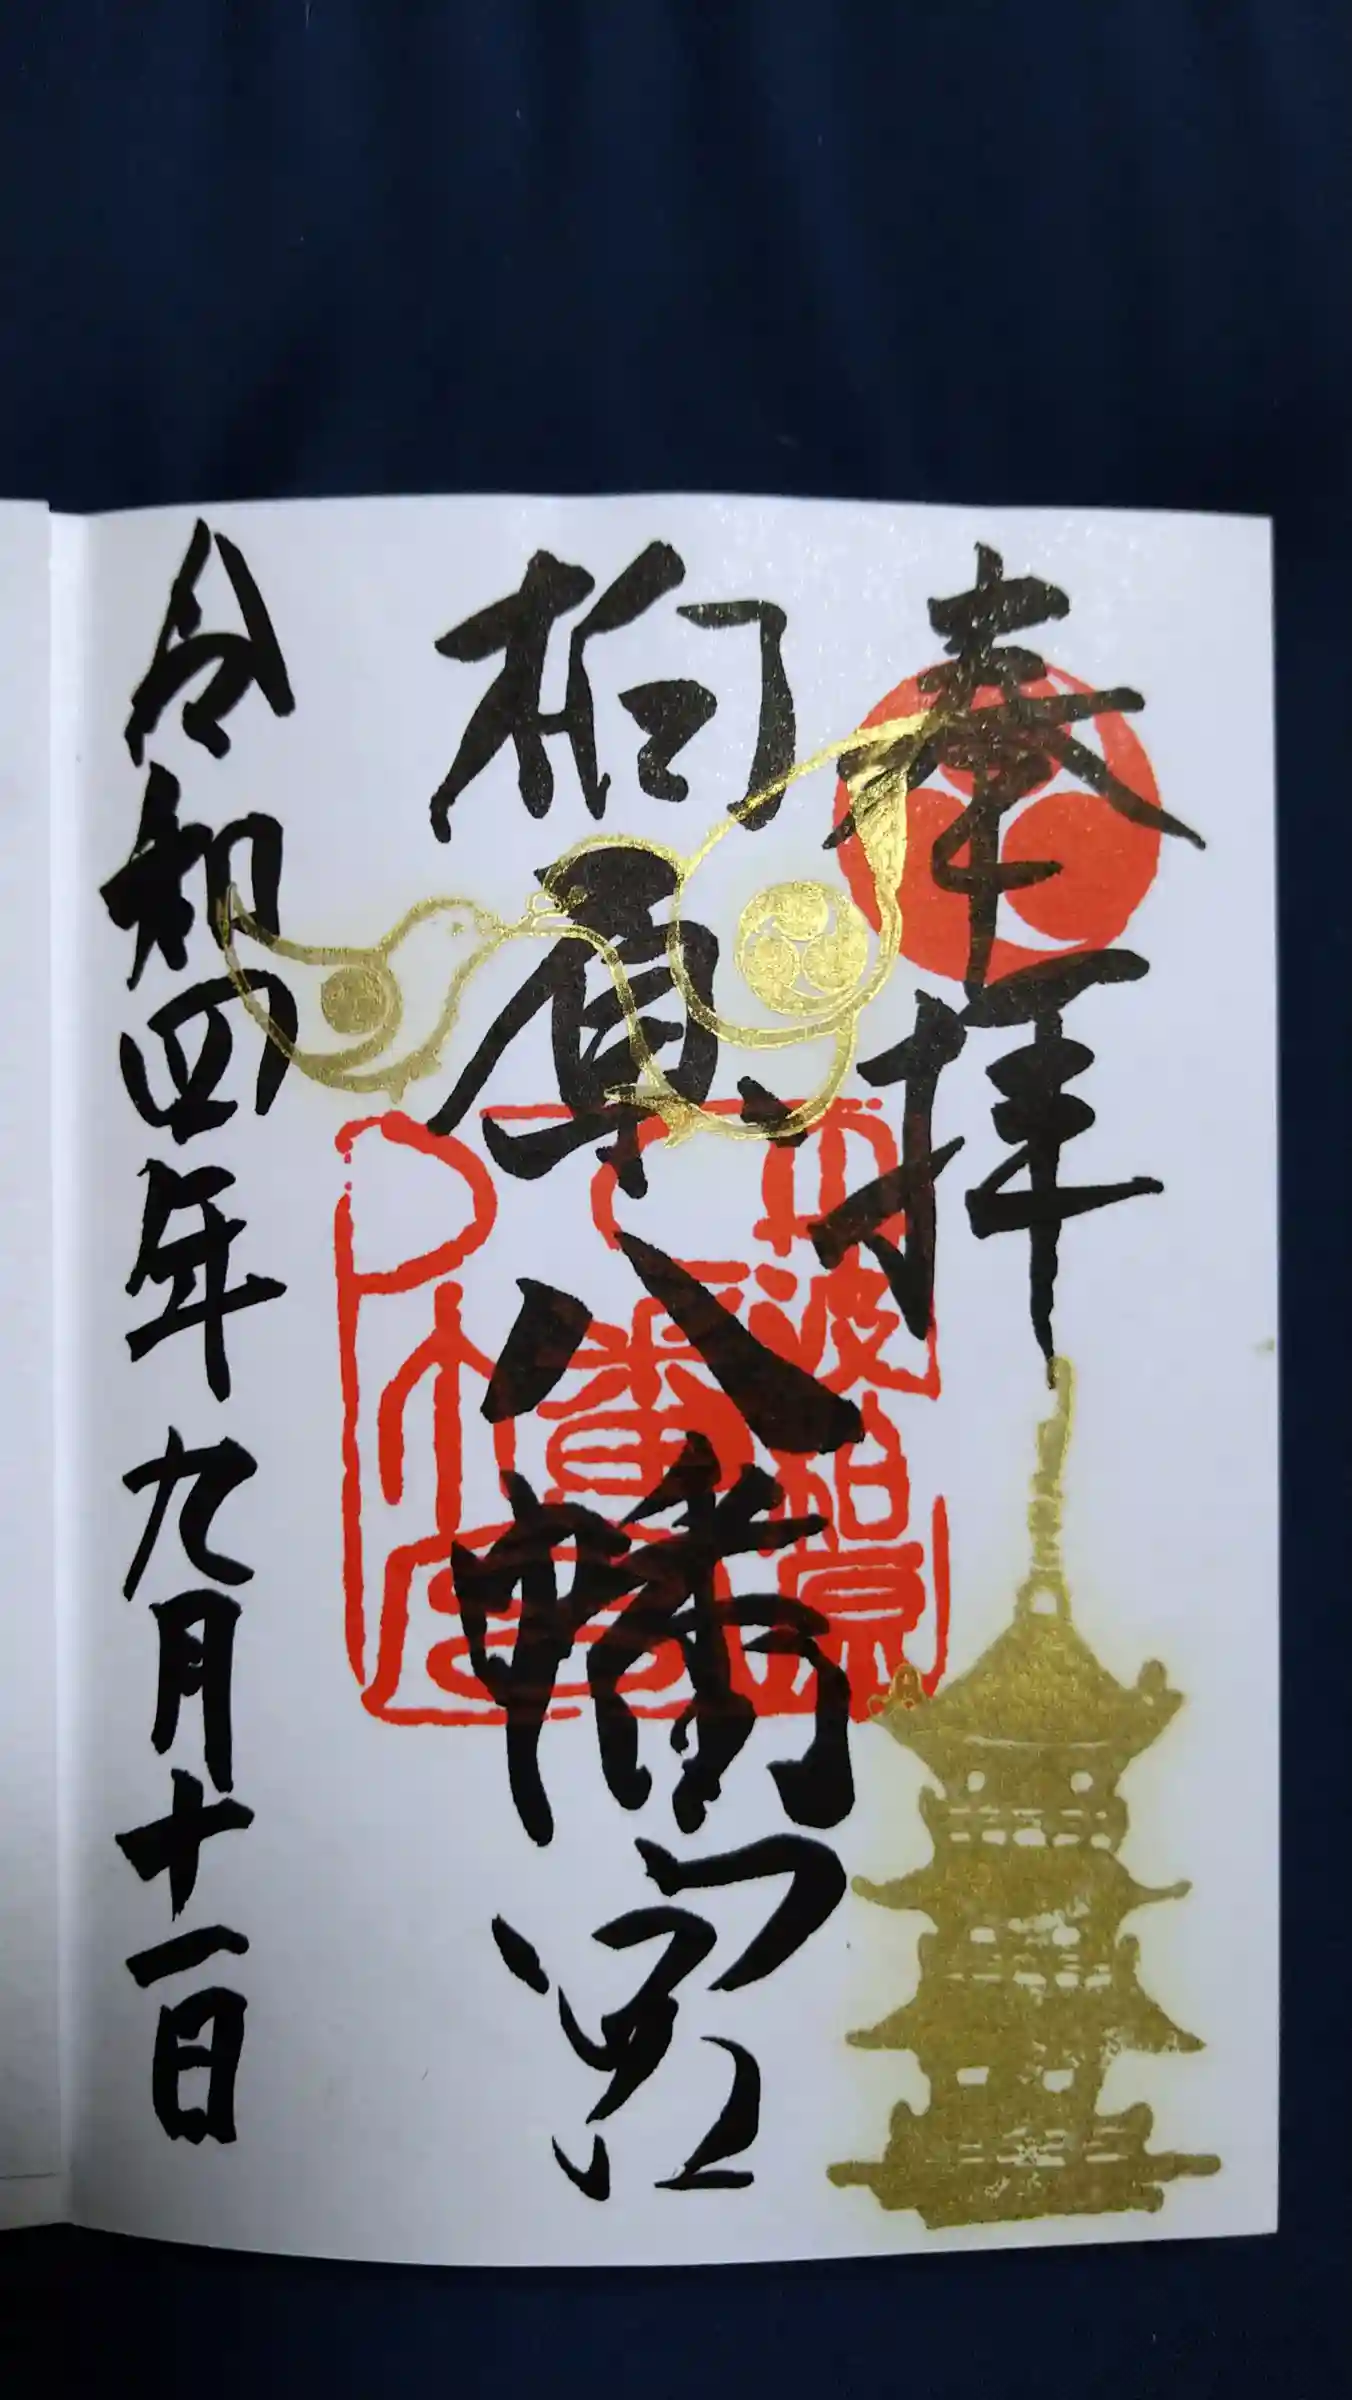 奉拝
柏原八幡宮
丹波柏原八幡宮
令和四年九月十一日